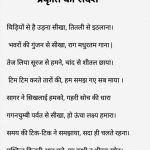 प्रकृति का संदेश
चिड़ियों से है उड़ना सीखा, तितली से इठलाना।
भवरों की गुंजन से सीखा, राग मधुरतम गाना।
तेज लिया सूरज से हमने, चांद से शीतल छाया।
टिम टिम करते तारों की, हम समझ गए सब माया।
सागर ने सिखलाई हमको, गहरी सोच की धारा
गगनचुम्बी पर्वत से सीखा, हो ऊंचा लक्ष्य हमारा।
समय की टिक-टिक ने समझाया, सदा ही चलते रहना।